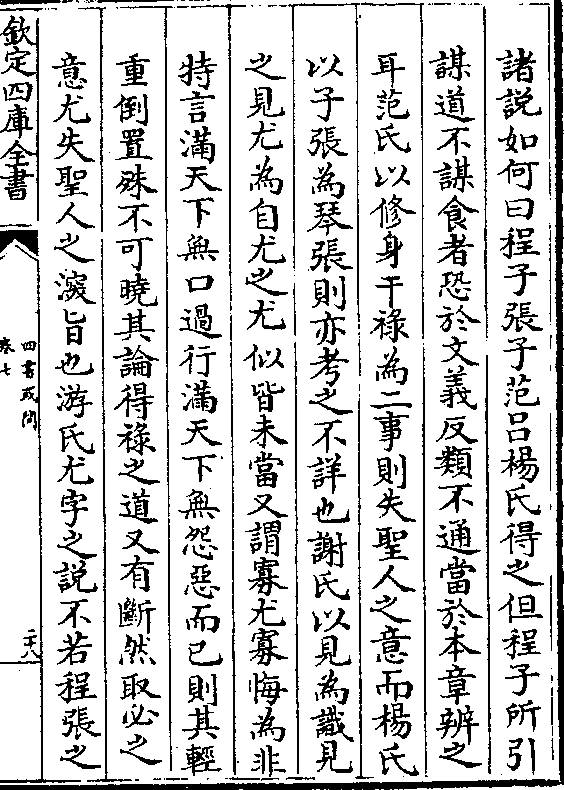 諸說如何曰程子張子范吕楊氏得之但程子所引
謀道不謀食者恐於文義反類不通當於本章辨之
耳范氏以修身干祿為二事則失聖人之意而楊氏
以子張為琴張則亦考之不詳也謝氏以見為識見
之見尤為自尤之尤似皆未當又謂寡尤寡悔為非
特言滿天下無口過行滿天下無怨惡而已則其輕
重倒置殊不可曉其論得祿之道又有斷然取必之
意尤失聖人之㴱旨也游氏尤字之說不若程張之
欽定四庫全書
四書或問
卷七
二十八